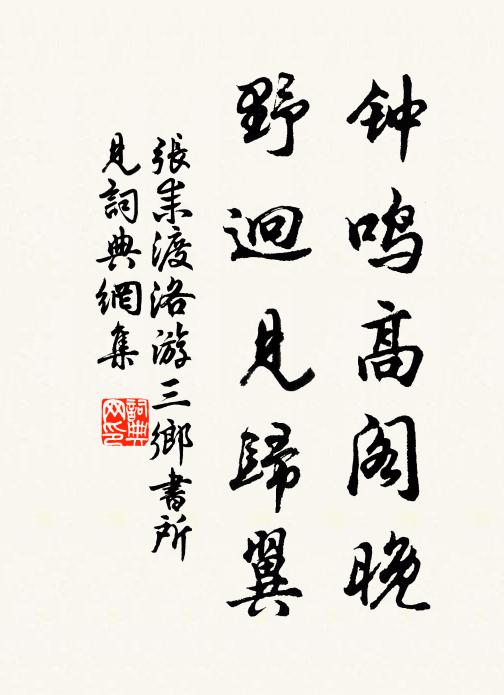 钟鸣高阁晚
野迥见歸翼
張耒渡洛游三鄉書所
見詞典網集
詞典
网印